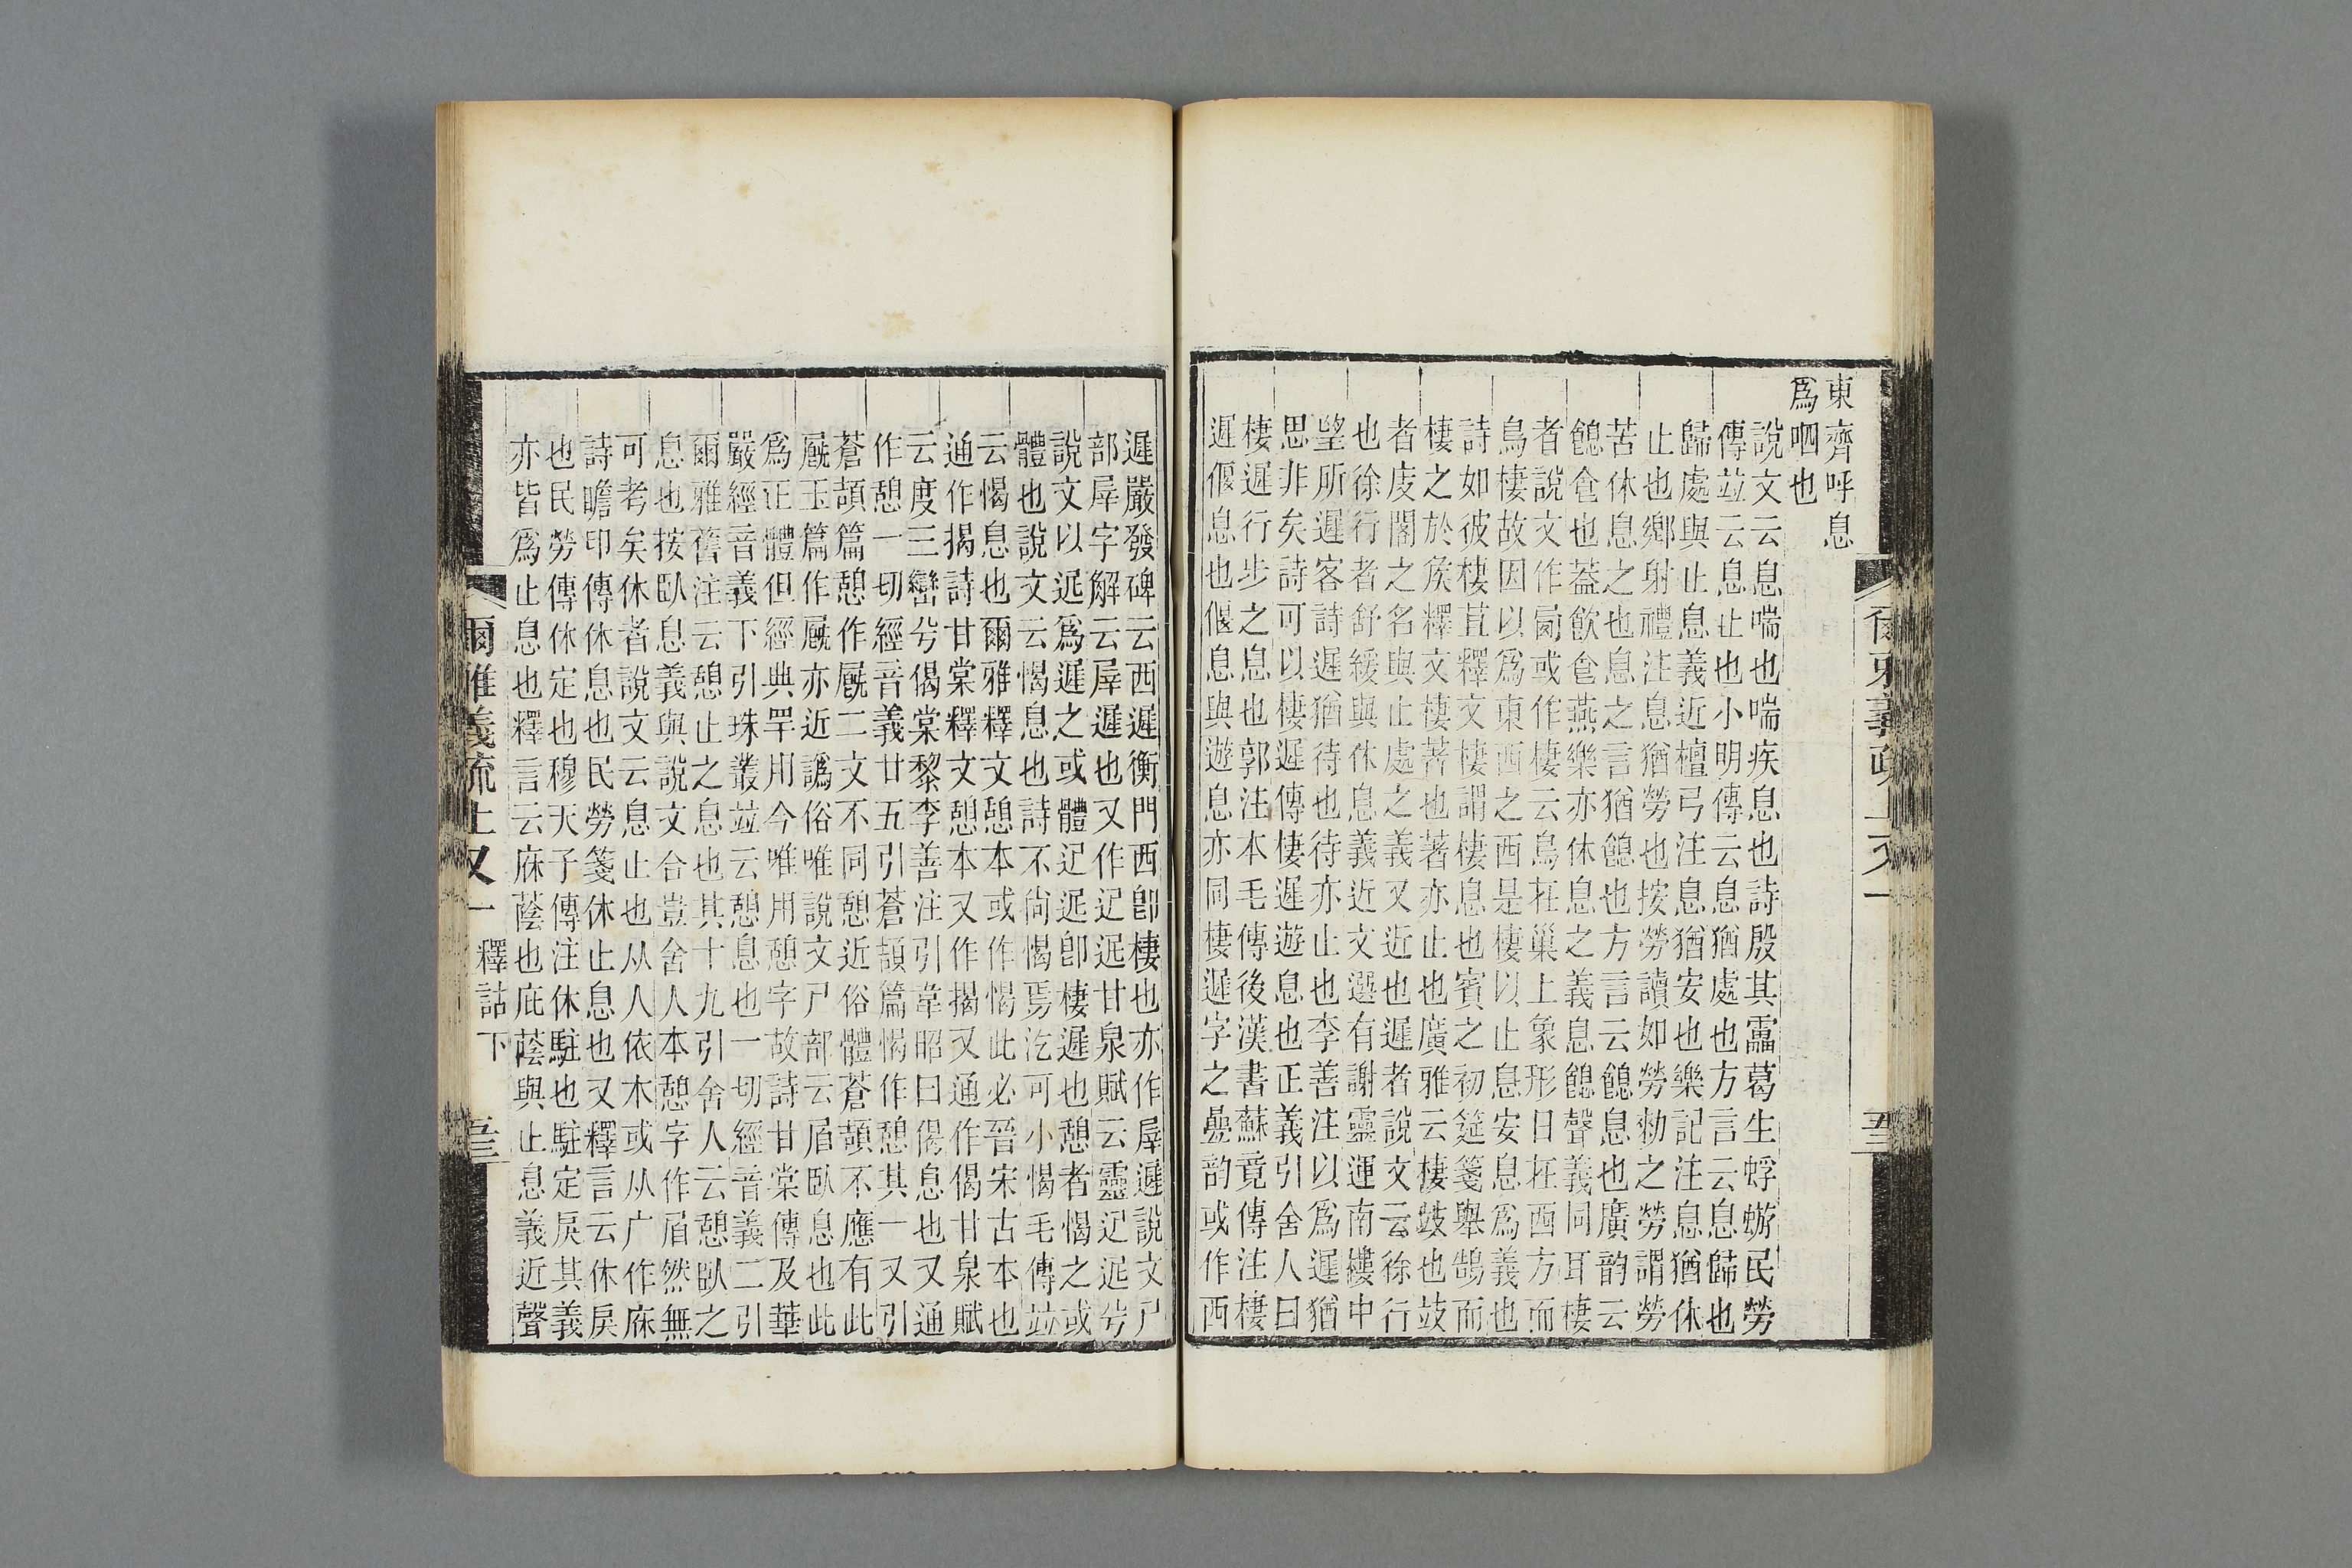 東齊呼息
爲呬也
說文云息喘也喘疾息也詩殷其靁葛生蜉蝣民勞
傳竝云息止也小明傳云息猶處也方言云息歸也
歸處與止息義近檀弓注息猶安也樂記注息猶休
止也鄉射禮注息猶勞也按勞讀如勞勑之勞謂勞
苦休息之也息之言猶餲也方言云餲息也廣韵云
餲食也葢飮食燕樂亦休息之義息餲聲義同耳棲
者說文作㢴或作棲云鳥在巢上象形日在西方而
鳥棲故因以爲東西之西是棲以止息安息爲義也
詩如彼棲苴釋文棲謂棲息也賓之初筵箋舉鵠而
棲之於矦釋文棲著也著亦止也廣雅云棲攱也攱
者庋閣之名與止處之義又近也遲者說文云徐行
也徐行者舒緩與休息義近文選有謝靈運南樓中
望所遲客詩遲猶待也待亦止也李善注以爲遲猶
思非矣詩可以棲遲傳棲遲遊息也正義引舍人曰
棲遲行步之息也郭注本毛傳後漢書蘇竟傳注棲
遲偃息也偃息與遊息亦同棲遲字之㬪韵或作西
遲嚴發碑云西遲衡門西卽棲也亦作屖遲說文尸
部屖字解云屖遲也又作迉迡甘泉賦云靈迉迡兮
說文以迡爲遲之或體迉迡卽棲遲也憩者愒之或
體也說文云愒息也詩不尙愒焉汔可小愒毛傳竝
云愒息也爾雅釋文憩本或作愒此必晉宋古本也
通作揭詩甘棠釋文憩本又作揭又通作偈甘泉賦
云度三巒兮偈棠黎李善注引韋昭曰偈息也又通
作憩一切經音義廿五引蒼頡篇愒作憩其一又引
蒼頡篇憩作㕧二文不同憩近俗體蒼頡不應有此
㕧玉篇作㕧亦近譌俗唯說文尸部云眉臥息也此
爲正體但經典罕用今唯用憩字故詩甘棠傳及華
嚴經音義下引珠叢竝云憩息也一切經音義二引
爾雅舊注云憩止之息也其十九引舍人云憩臥之
息也按臥息義與說文合豈舍人本憩字作眉然無
可考矣休者說文云息止也从人依木或从广作庥
詩瞻卬傳休息也民勞箋休止息也又釋言云休戾
也民勞傳休定也穆天子傳注休駐也駐定戾其義
亦皆爲止息也釋言云庥蔭也庇蔭與止息義近聲
爾雅義疏上又一 釋詁下 五三